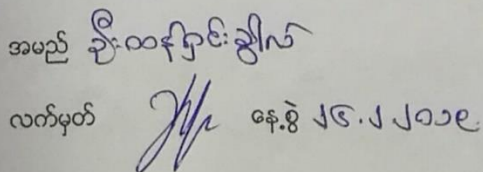 အမည် ဦးထန်ရှင်းခွါလ်
လက်မှတ် နေ့စွဲ ၂၄.၂ ၂၀၁၉